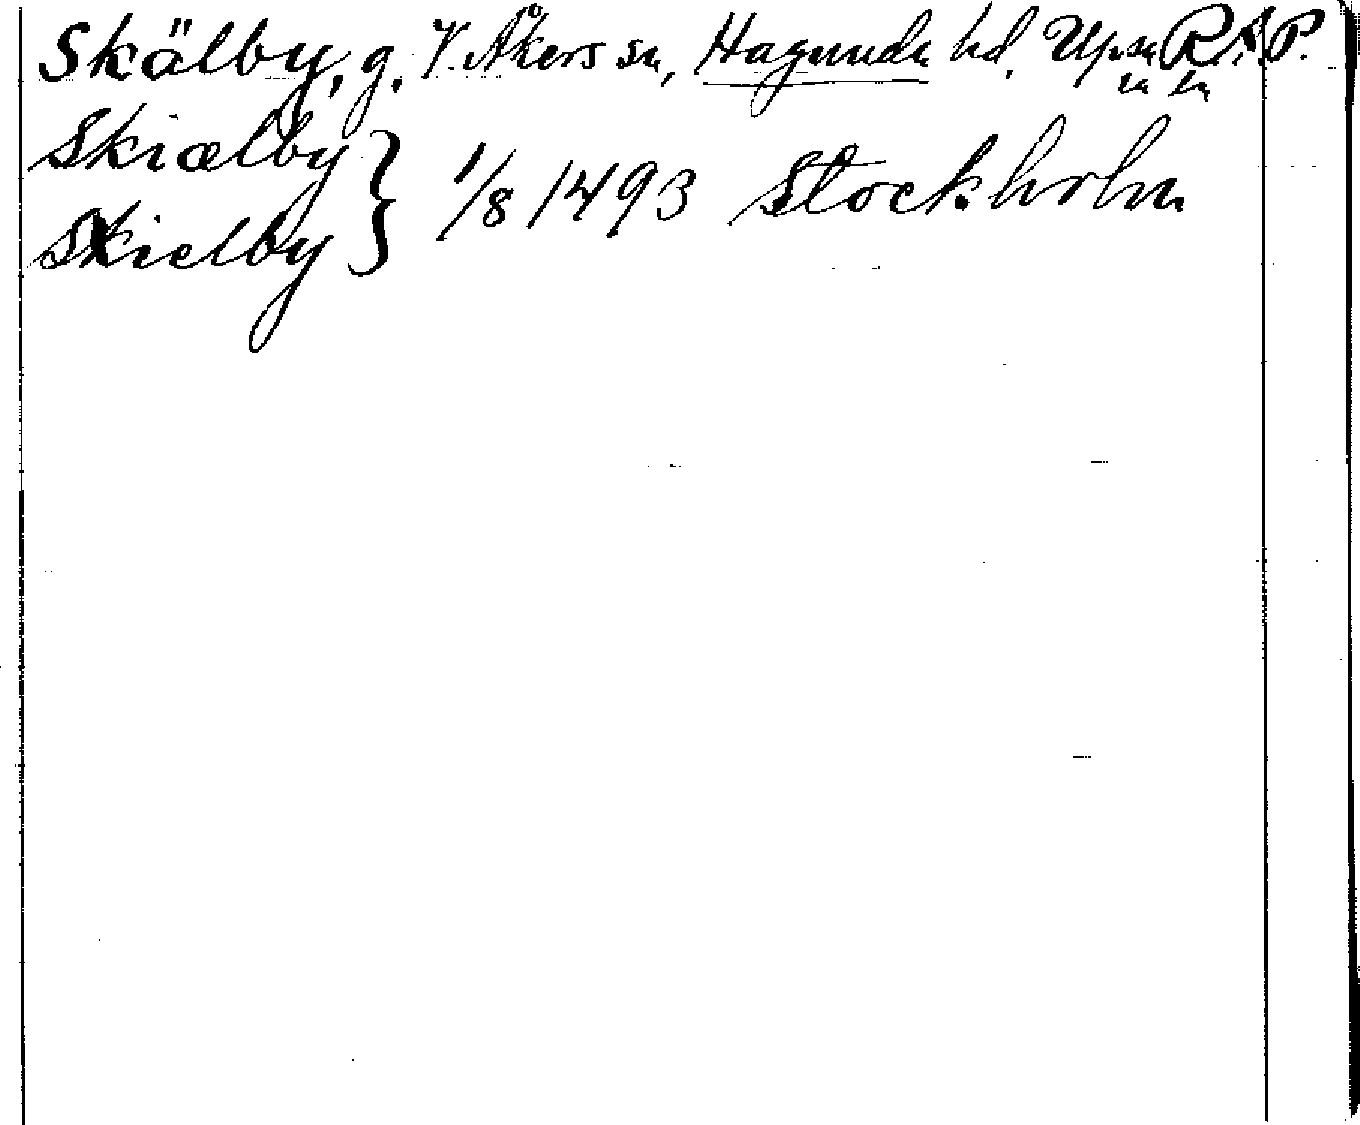 Skälby, g. V. Åkers sn, Hagunda hd. Upsa R.A.P.
Skiælby } 1/8 1493 Stockholm
Skielby